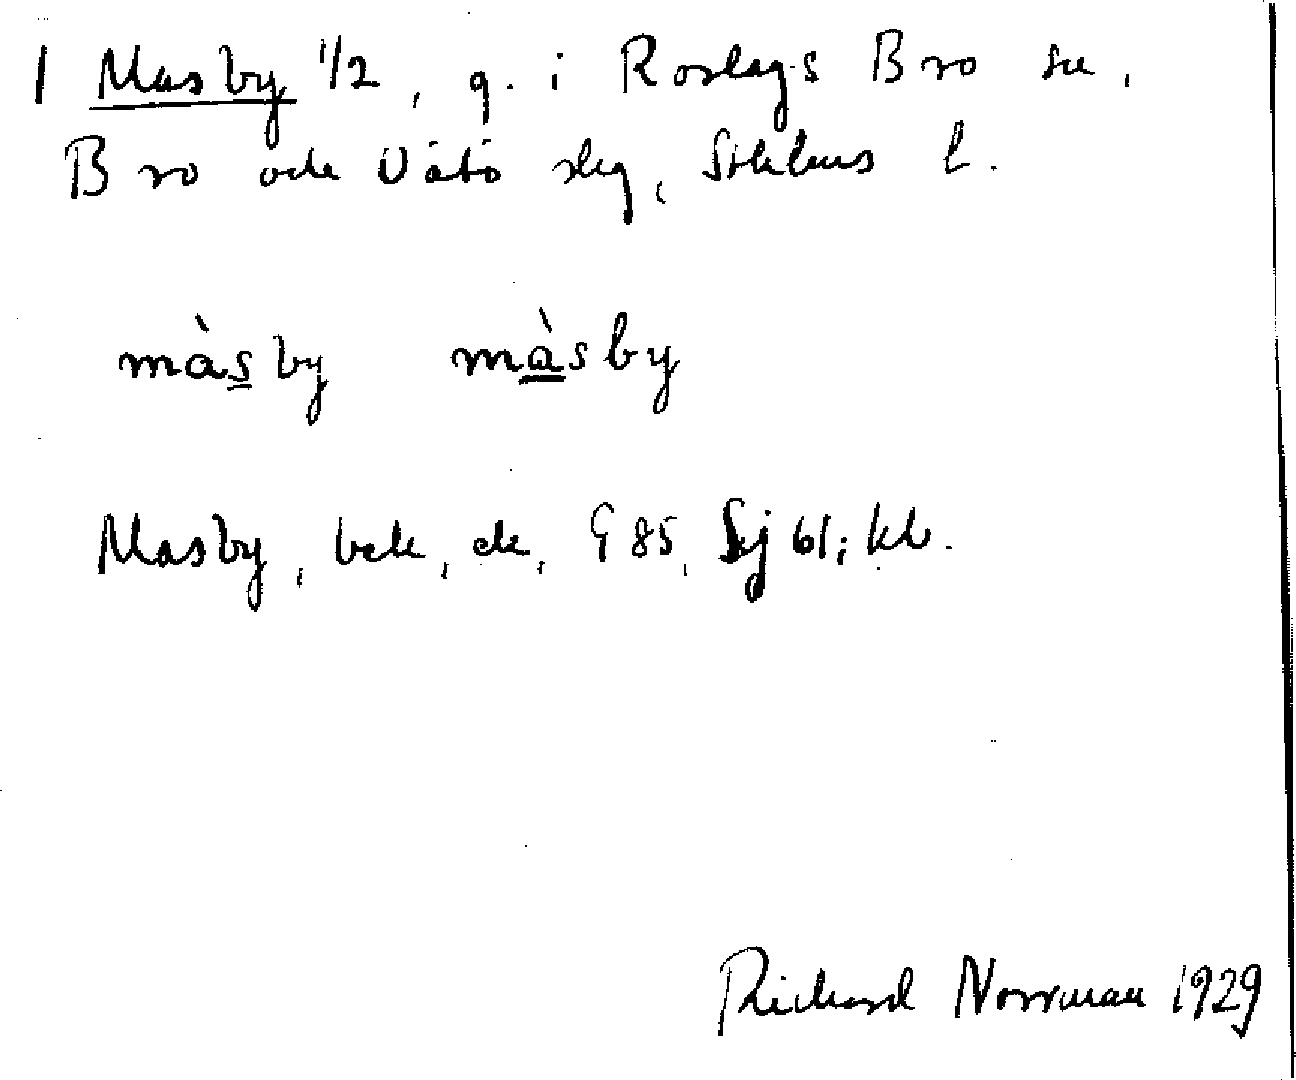 1 Masby 1/2, g. i Roslags Bro sn,
Bro och Vätö slg, Sthlms l.
màsby màsby
Masby, bek, ek, G 85, Sj 61; kb.
Richard Norrman 1929